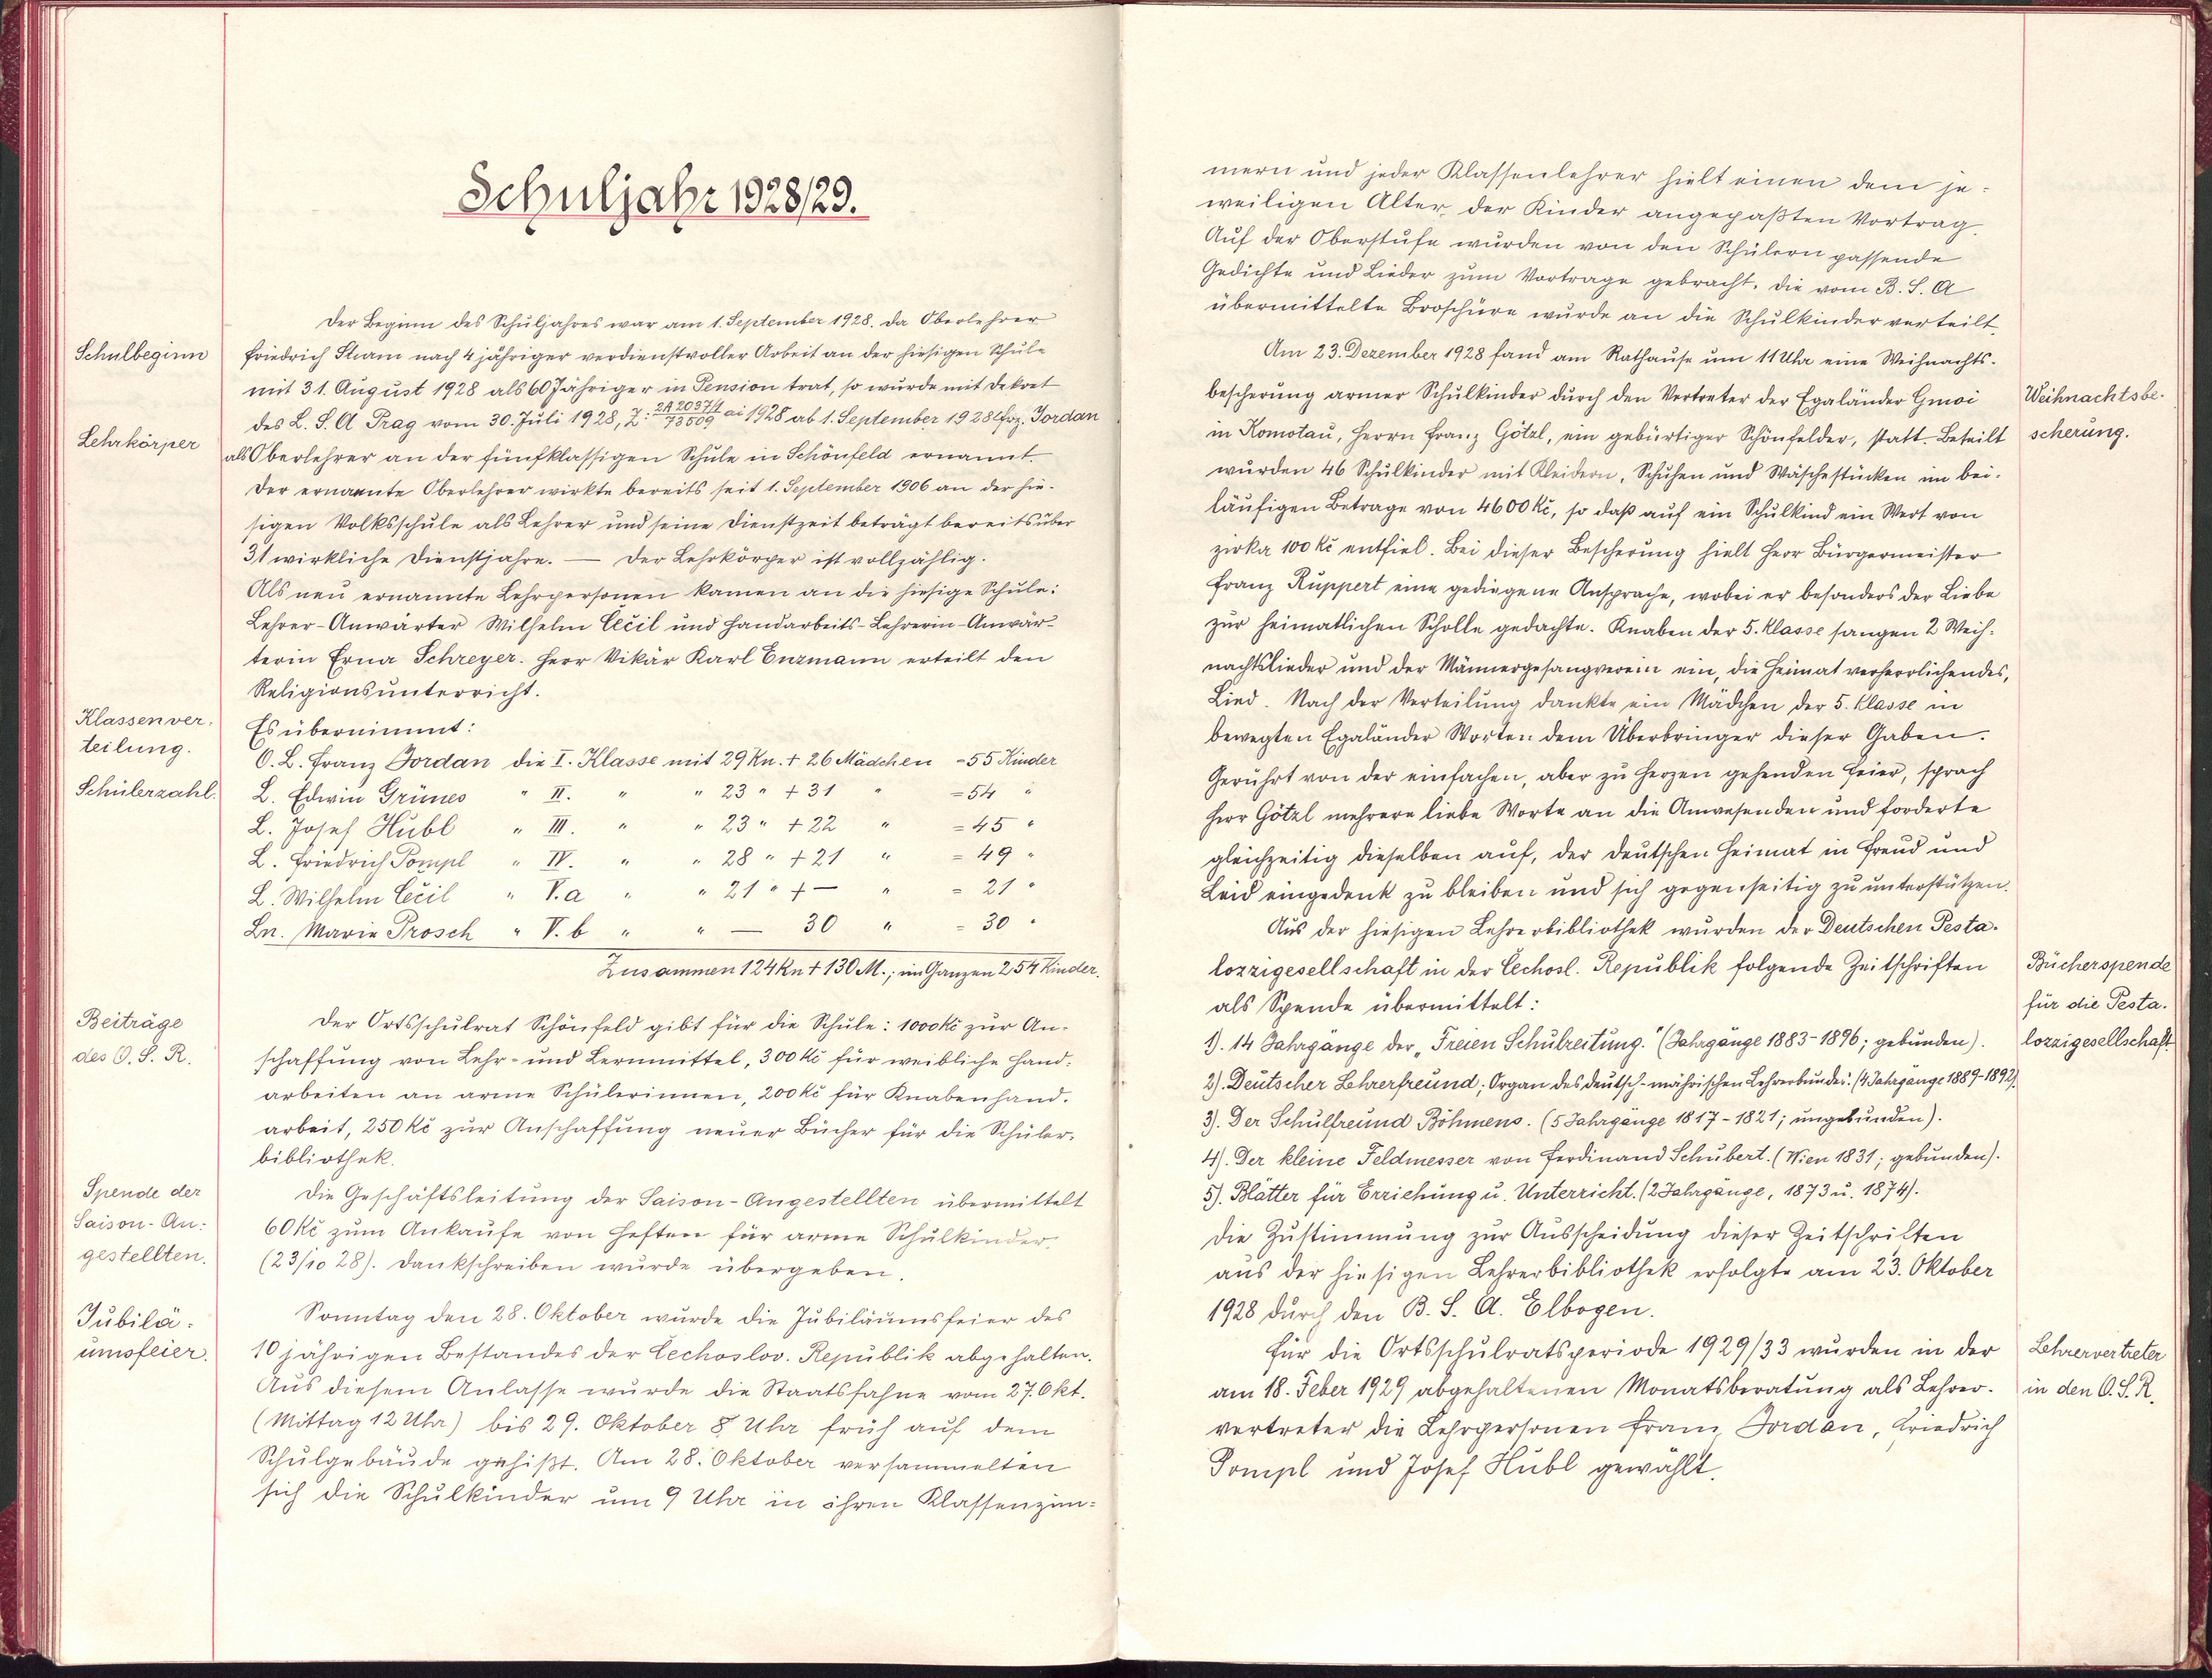 Schuljahr 1928/29.
Der Beginn des Schuljahres war am 1. September 1928. Da Oberlehrer
Schulbeginn
Friedrich Sturm nach 4 jähriger verdienstvoller Arbeit an der hiesigen Schule
mit 31. August 1928 als 60 Jähriger in Pension trat, so wurde mit Dekret
des L. S. A Prag vom 30. Juli 1928, Z: 2A 2037/1 / 73509 ai 1928 ab 1. September 1928 Jordan
Lehrkörper
als Oberlehrer an der fünfklassigen Schule in Schönfeld ernannt.
Der ernannte Oberlehrer wirkte bereits seit 1. September 1906 an der hie-
sigen Volksschule als Lehrer und seine Dienstzeit beträgt bereits über
31 wirkliche Dienstjahre. — Der Lehrkörper ist vollzählig.
Als neu ernannte Lehrpersonen kamen an die hiesige Schule:
Lehrer-Anwärter Wilhelm Cečil und Handarbeits-Lehrerin-Anwär-
terin Erna Schreyer. Herr Vikär Karl Enzmann erteilt den
Religionsunterricht.
Klassenver-
teilung.
Es übernimmt:
O. L. Franz Jordan die I. Klasse mit 29 Kn. + 26 Mädchen = 55 Kinder
Schülerzahl.
L. Edwin Grünes " II. " " 23 " + 31 " = 54 "
L. Josef Hubl " III. " " 23 " + 22 " = 45 "
L. Friedrich Pompl " IV. " " 28 " + 21 " = 49 "
L. Wilhelm Cečil " V. a " " 21 " + — " = 21 "
Ln. Marie Prosch " V. b " " — 30 " = 30 "
Zusammen 124 Kn + 130 M.; im Ganzen 254 Kinder.
Beiträge
des O. S. R.
Der Ortsschulrat Schönfeld gibt für die Schule: 1000 Kč zur An-
schaffung von Lehr- und Lernmittel, 300 Kč für weibliche Hand-
arbeiten an arme Schülerinnen, 200 Kč für Knabenhand-
arbeit, 250 Kč zur Anschaffung neuer Bücher für die Schüler-
bibliothek.
Spende der
Saison-An-
gestellten.
Die Geschäftsleitung der Saison-Angestellten übermittelt
60 Kč zum Ankaufe von Heften für arme Schulkinder.
(23/10 28). Dankschreiben wurde übergeben.
Jubilä-
umsfeier.
Sonntag den 28. Oktober wurde die Jubiläumsfeier des
10 jährigen Bestandes der Čechoslov. Republik abgehalten.
Aus diesem Anlasse wurde die Staatsfahne vom 27. Okt.
(Mittag 12 Uhr) bis 29. Oktober 8 Uhr früh auf dem
Schulgebäude gehißt. Am 28. Oktober versammelten
sich die Schulkinder um 9 Uhr in ihren Klassenzim-
mern und jeder Klassenlehrer hielt einen dem je-
weiligen Alter der Kinder angepaßten Vortrag.
Auf der Oberstufe wurden von den Schülern passende
Gedichte und Lieder zum Vortrage gebracht. Die vom B. S. A
übermittelte Broschüre wurde an die Schulkinder verteilt.
Am 23. Dezember 1928 fand am Rathause um 11 Uhr eine Weihnachts-
bescherung armer Schulkinder durch den Vertreter der Egaländer Gmoi
Weihnachtsbe-
scherung.
in Komotau, Herrn Franz Götzl, ein gebürtiger Schönfelder, statt. Beteilt
wurden 46 Schulkinder mit Kleidern, Schuhen und Wäschestücken im bei-
läufigen Betrage von 4600 Kč, so daß auf ein Schulkind ein Wert von
zirka 100 Kč entfiel. Bei dieser Bescherung hielt Herr Bürgermeister
Franz Ruppert eine gediegene Ansprache, wobei er besonders der Liebe
zur heimatlichen Scholle gedachte. Knaben der 5. Klasse sangen 2 Weih-
nachtslieder und der Männergesangverein ein, die Heimat verherrlichendes,
Lied. Nach der Verteilung dankte ein Mädchen der 5. Klasse in
bewegten Egaländer Worten dem Überbringer dieser Gaben.
Gerührt von der einfachen, aber zu Herzen gehenden Feier, sprach
Herr Götzl mehrere liebe Worte an die Anwesenden und forderte
gleichzeitig dieselben auf, der deutschen Heimat in Freud und
Leid eingedenk zu bleiben und sich gegenseitig zu unterstützen.
Aus der hiesigen Lehrerbibliothek wurden der Deutschen Pesta-
lozzigesellschaft in der Čechosl. Republik folgende Zeitschriften
als Spende übermittelt:
Bücherspende
für die Pesta-
lozzigesellschaft.
1). 14 Jahrgänge der „Freien Schulzeitung." (Jahrgänge 1883-1896; gebunden).
2). Deutscher Lehrerfreund; Organ des deutsch-mährischen Lehrerbundes. (4 Jahrgänge 1889-1892).
3). Der Schulfreund Böhmens. (5 Jahrgänge 1817-1821; ungebunden).
4). Der kleine Feldmesser von Ferdinand Schubert. (Wien 1831; gebunden).
5). Blätter für Erziehung u. Unterricht. (2 Jahrgänge, 1873 u. 1874).
Die Zustimmung zur Ausscheidung dieser Zeitschriften
aus der hiesigen Lehrerbibliothek erfolgte am 23. Oktober
1928 durch den B. S. A. Elbogen.
Für die Ortsschulratsperiode 1929/33 wurden in der
Lehrervertreter
in den O. S. R.
am 18. Feber 1929 abgehaltenen Monatsberatung als Lehrer-
vertreter die Lehrpersonen Franz Jordan, Friedrich
Pompl und Josef Hubl gewählt.